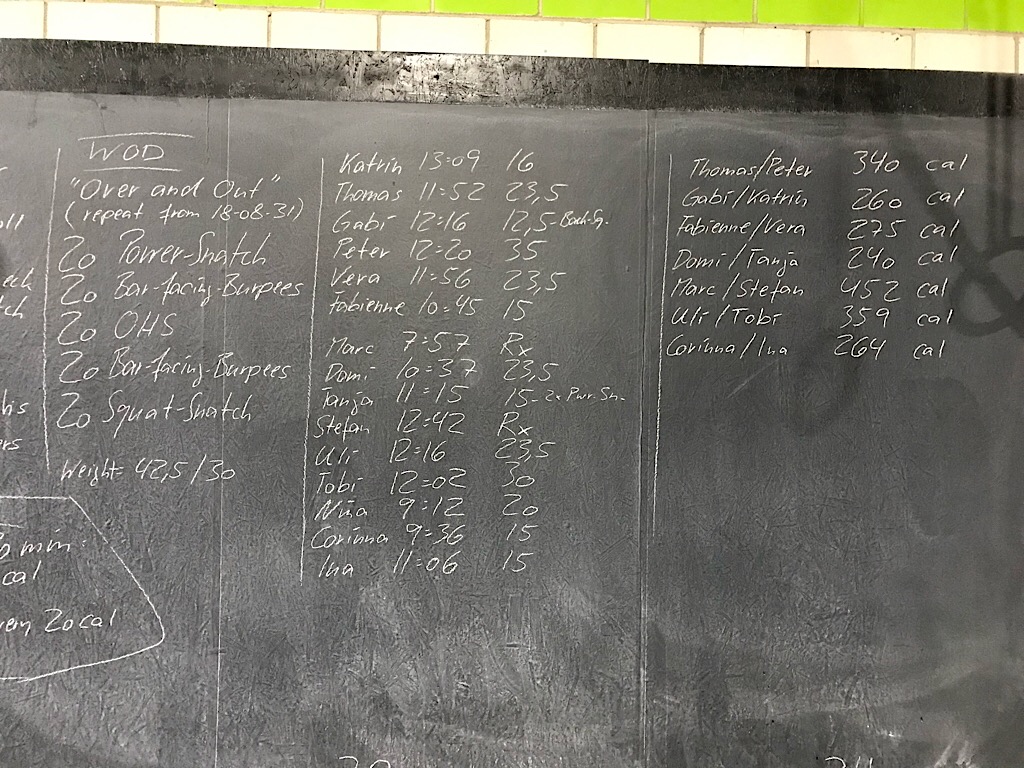 WOD
"Over and Out"
(repeat from 18-08-31)
20 Power-Snatch
20 Bar-facing-Burpees
20 OHS
20 Bar-facing-Burpees
20 Squat-Snatch
Weight= 42,5/30
min.
cal
20cal
Katrin 13:09 16
Thomas 11:52 23,5
Gabi 12:16 12,5-
Peter 12:20 35
Vera 11:56 23,5
Fabienne 10:45 15
Marc 7:57 Rx
Domi 10:37 23,5
Tanja 11:15 15- 2x Pwr-Sn.
Stefan 12:42 Rx
Uli 12:16 23,5
Tobi 12:02 30
Nina 9:12 20
Corinna 9:36 15
Ina 11:06 15
Thomas/Peter 340 cal
Gabi/Katrin 260 cal
Fabienne/Vera 275 cal
Domi/Tanja 240 cal
Marc/Stefan 452 cal
Uli/Tobi 359 cal
Corinna/Ina 264 cal